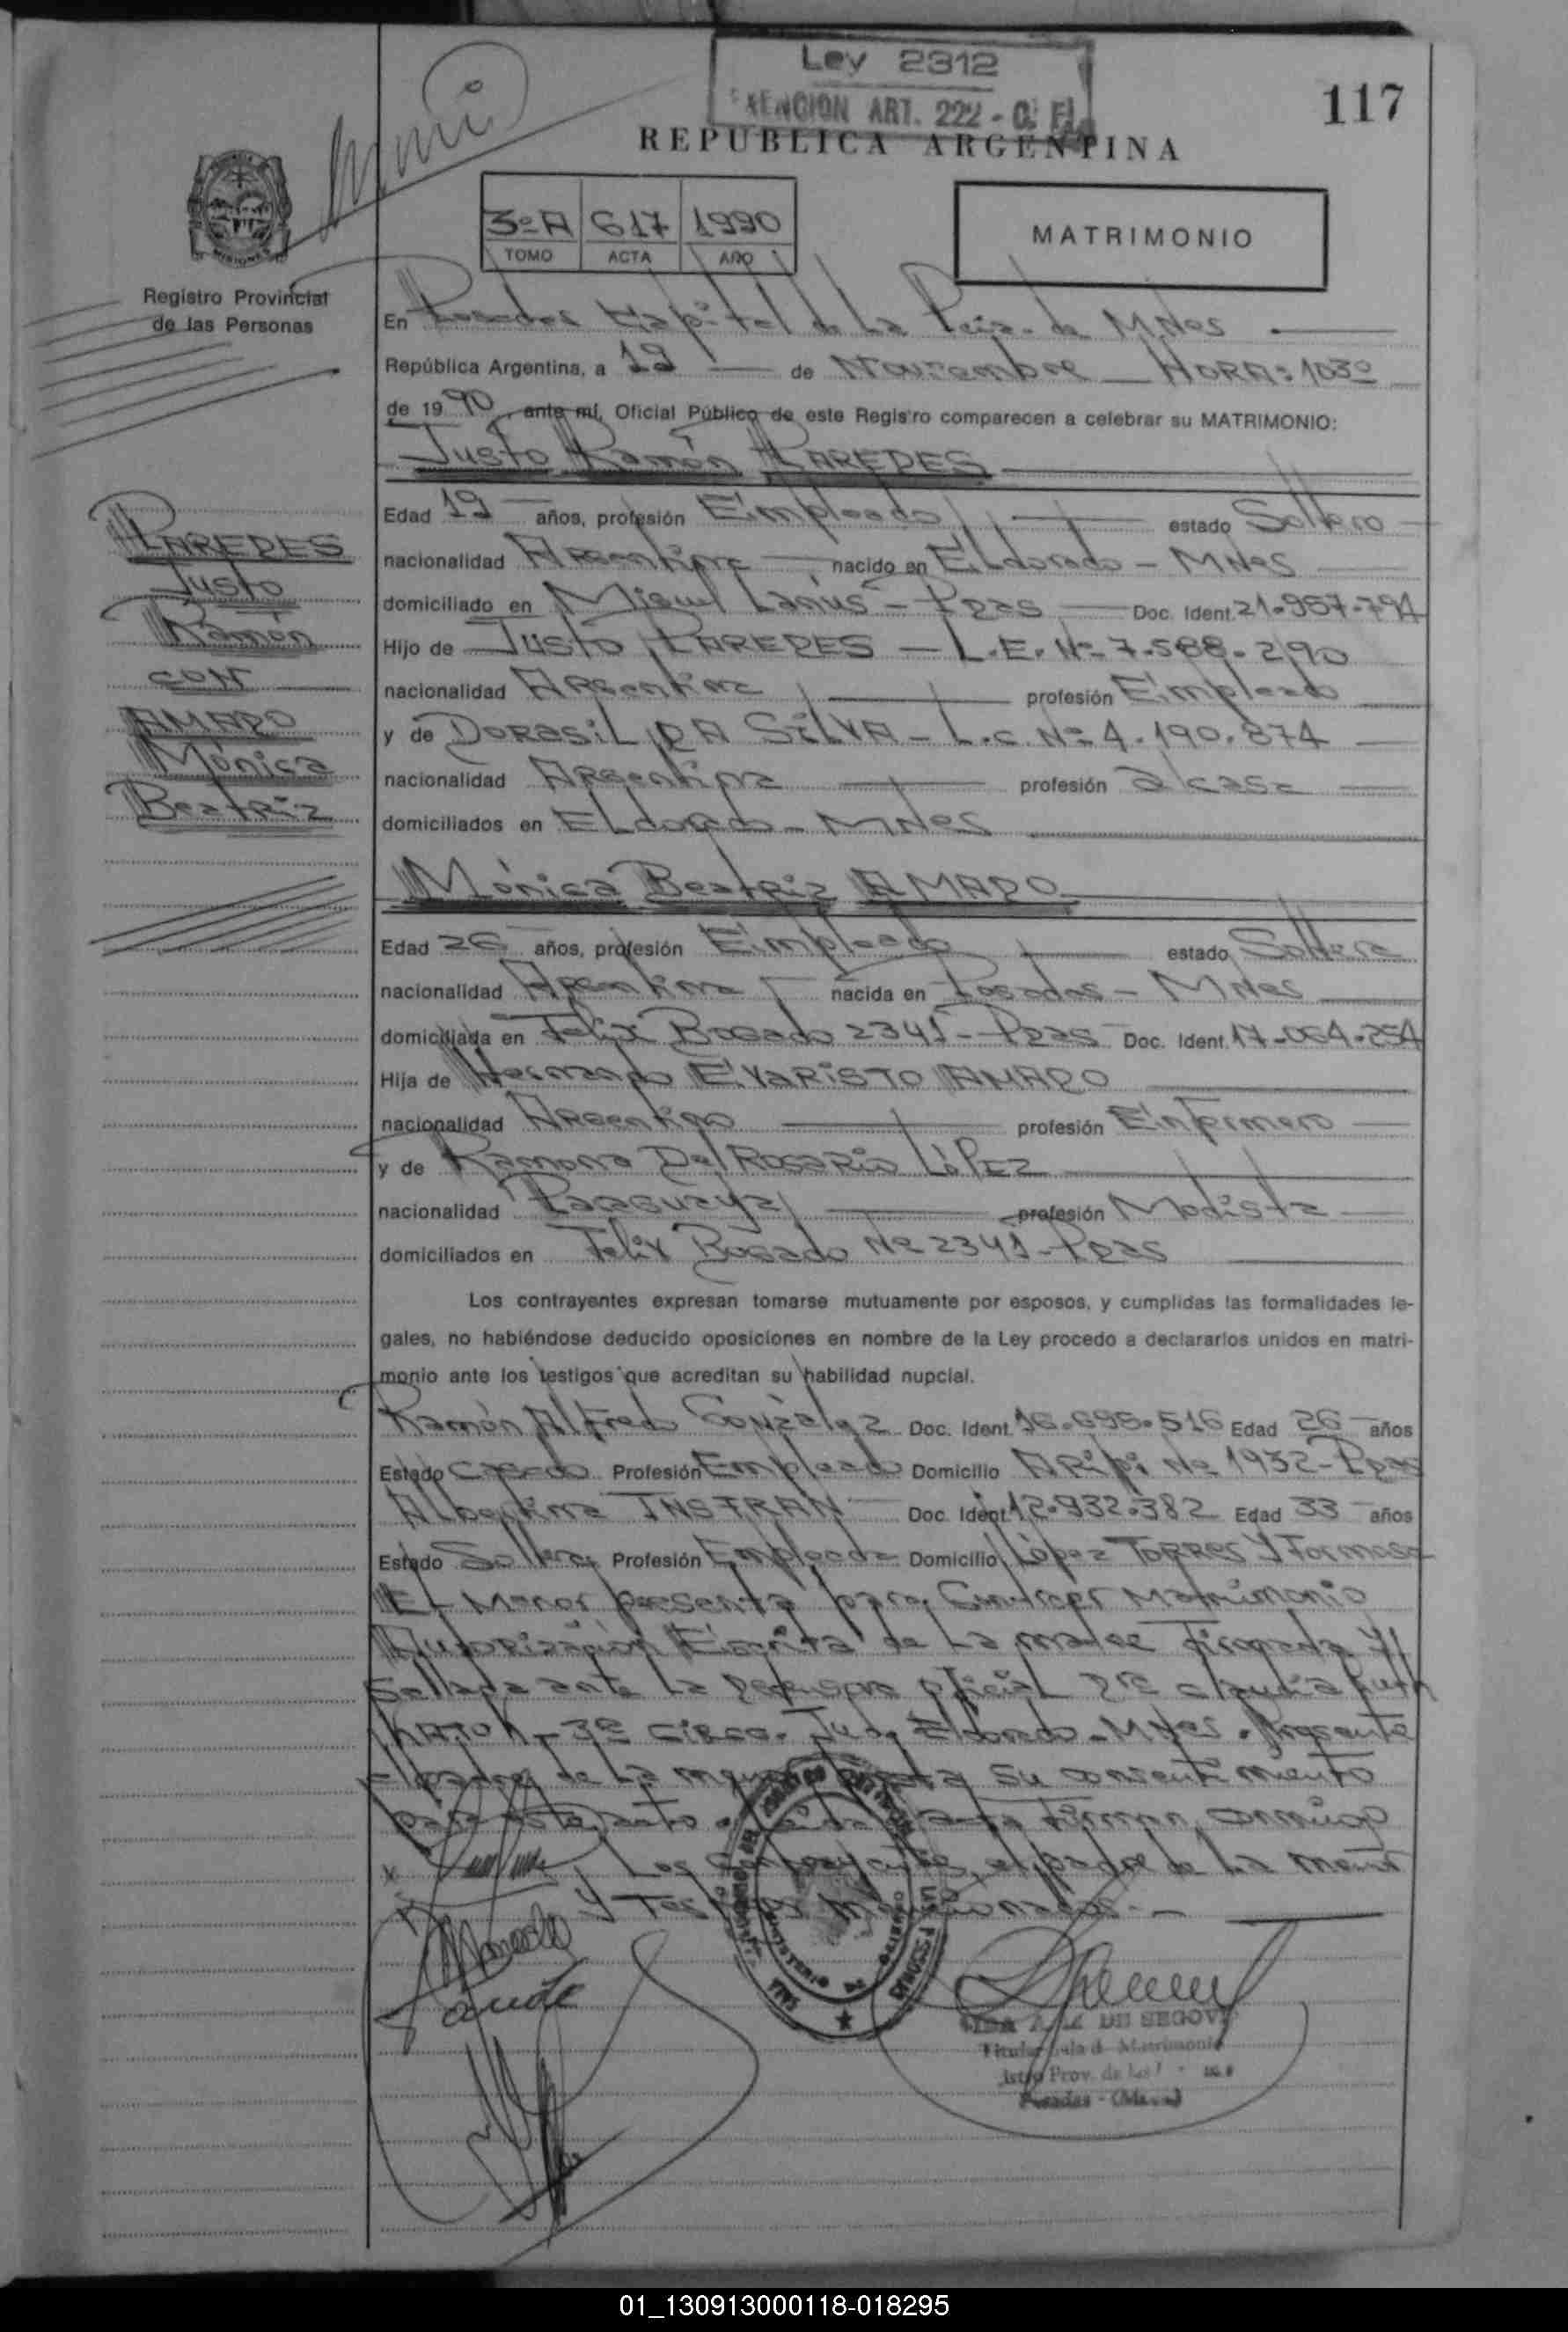 Ley 2312
EXENCION ART. 222 - C. F.
117
REPUBLICA ARGENTINA
3º A 617 1990
TOMO ACTA AÑO
MATRIMONIO
MISIONES
Registro Provincial
de las Personas
En Posadas Capital de La Pcia. de Mnes
República Argentina, a 19 de Noviembre HORA: 1030
de 19 90, ante mí, Oficial Público de este Registro comparecen a celebrar su MATRIMONIO:
Justo Ramón PAREDES
Edad 19 años, profesión Empleado estado Soltero
PAREDES
Justo
Ramón
CON
AMARO
Mónica
Beatriz
nacionalidad Argentina nacido en Eldorado - Mnes
domiciliado en Miguel Lanús - Pdas Doc. Ident. 21.957.794
Hijo de Justo PAREDES - L.E. Nº 7.588.290
nacionalidad Argentina profesión Empleado
y de DORASIL DA SILVA - L.C. Nº 4.190.874
nacionalidad Argentina profesión a/casa
domiciliados en Eldorado - Mnes
Mónica Beatriz AMARO
Edad 26 años, profesión Empleado estado Soltera
nacionalidad Argentina nacida en Posadas - Mnes
domiciliada en Felix Bogado 2341 - Pdas Doc. Ident. 17.064.254
Hija de Hernando EVARISTO AMARO
nacionalidad Argentino profesión Enfermero
y de Ramona Del Rosario LÓPEZ
nacionalidad Paraguaya profesión Modista
domiciliados en Felix Bogado Nº 2341 - Pdas
Los contrayentes expresan tomarse mutuamente por esposos, y cumplidas las formalidades le-
gales, no habiéndose deducido oposiciones en nombre de la Ley procedo a declararlos unidos en matri-
monio ante los testigos que acreditan su habilidad nupcial.
Ramón Alfredo González Doc. Ident. 16.695.516 Edad 26 años
Estado Casado Profesión Empleado Domicilio Nº 1932 - Pdas
Albertina INSFRAN Doc. Ident. 12.932.382 Edad 33 años
Estado Soltera Profesión Empleada Domicilio López TORRES Y Formosa
El Menor presenta para Contraer Matrimonio
Autorización Escrita de La madre Firmada Y
Sellada ante La Defensora Oficial Dra Claudia Ruth
- 3ª Circ. Jud. Eldorado - Mnes. Presente
el padre de La su consentimiento
para este acto. Leida acta Firman conmigo
Los Contrayentes, el padre de La
Y Testigos Mencionados.-
DE SEGOVIA
Titular Sala d. Matrimonio
Prov. de las
Posadas - (Mnes)
01_130913000118-018295